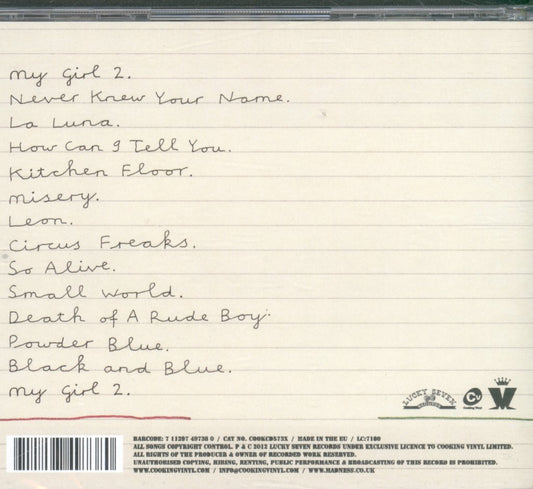 My Girl 2.
Never Knew Your Name.
La Luna.
How Can I Tell You.
Kitchen Floor.
Misery.
Leon.
Circus Freaks.
So Alive.
Small World.
Death of A Rude Boy.
Powder Blue.
Black and Blue.
My Girl 2.
LUCKY SEVEN
Cooking Vinyl
BARCODE: 7 11297 49738 0 / CAT NO. COOKCD573X / MADE IN THE EU / LC:7180
ALL SONGS COPYRIGHT CONTROL. P & C 2012 LUCKY SEVEN RECORDS UNDER EXCLUSIVE LICENCE TO COOKING VINYL LIMITED.
ALL RIGHTS OF THE PRODUCER & OWNER OF RECORDED WORK RESERVED.
UNAUTHORISED COPYING, HIRING, RENTING, PUBLIC PERFORMANCE & BROADCASTING OF THIS RECORD IS PROHIBITED.
WWW.COOKINGVINYL.COM / INFO@COOKINGVINYL.COM / WWW.MADNESS.CO.UK